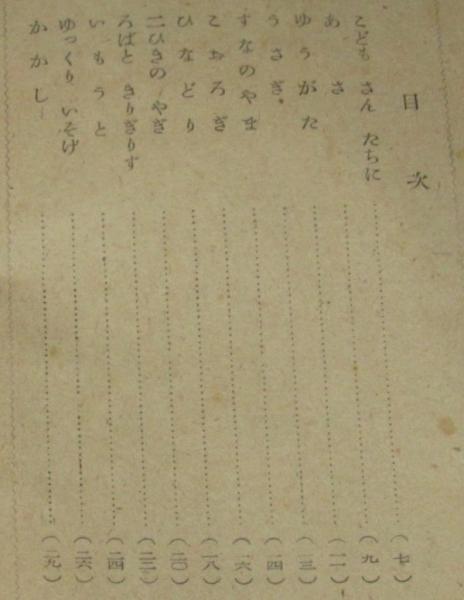 目次
こども さん たちに……(七)
あさ……(九)
ゆうがた……(一一)
うさぎ……(一三)
すなのやま……(一四)
こおろぎ……(一六)
ひなどり……(一八)
二ひきの やぎ……(二〇)
ろばと きりぎりす……(二二)
いもうと……(二四)
ゆっくり いそげ……(二六)
かかし……(二九)